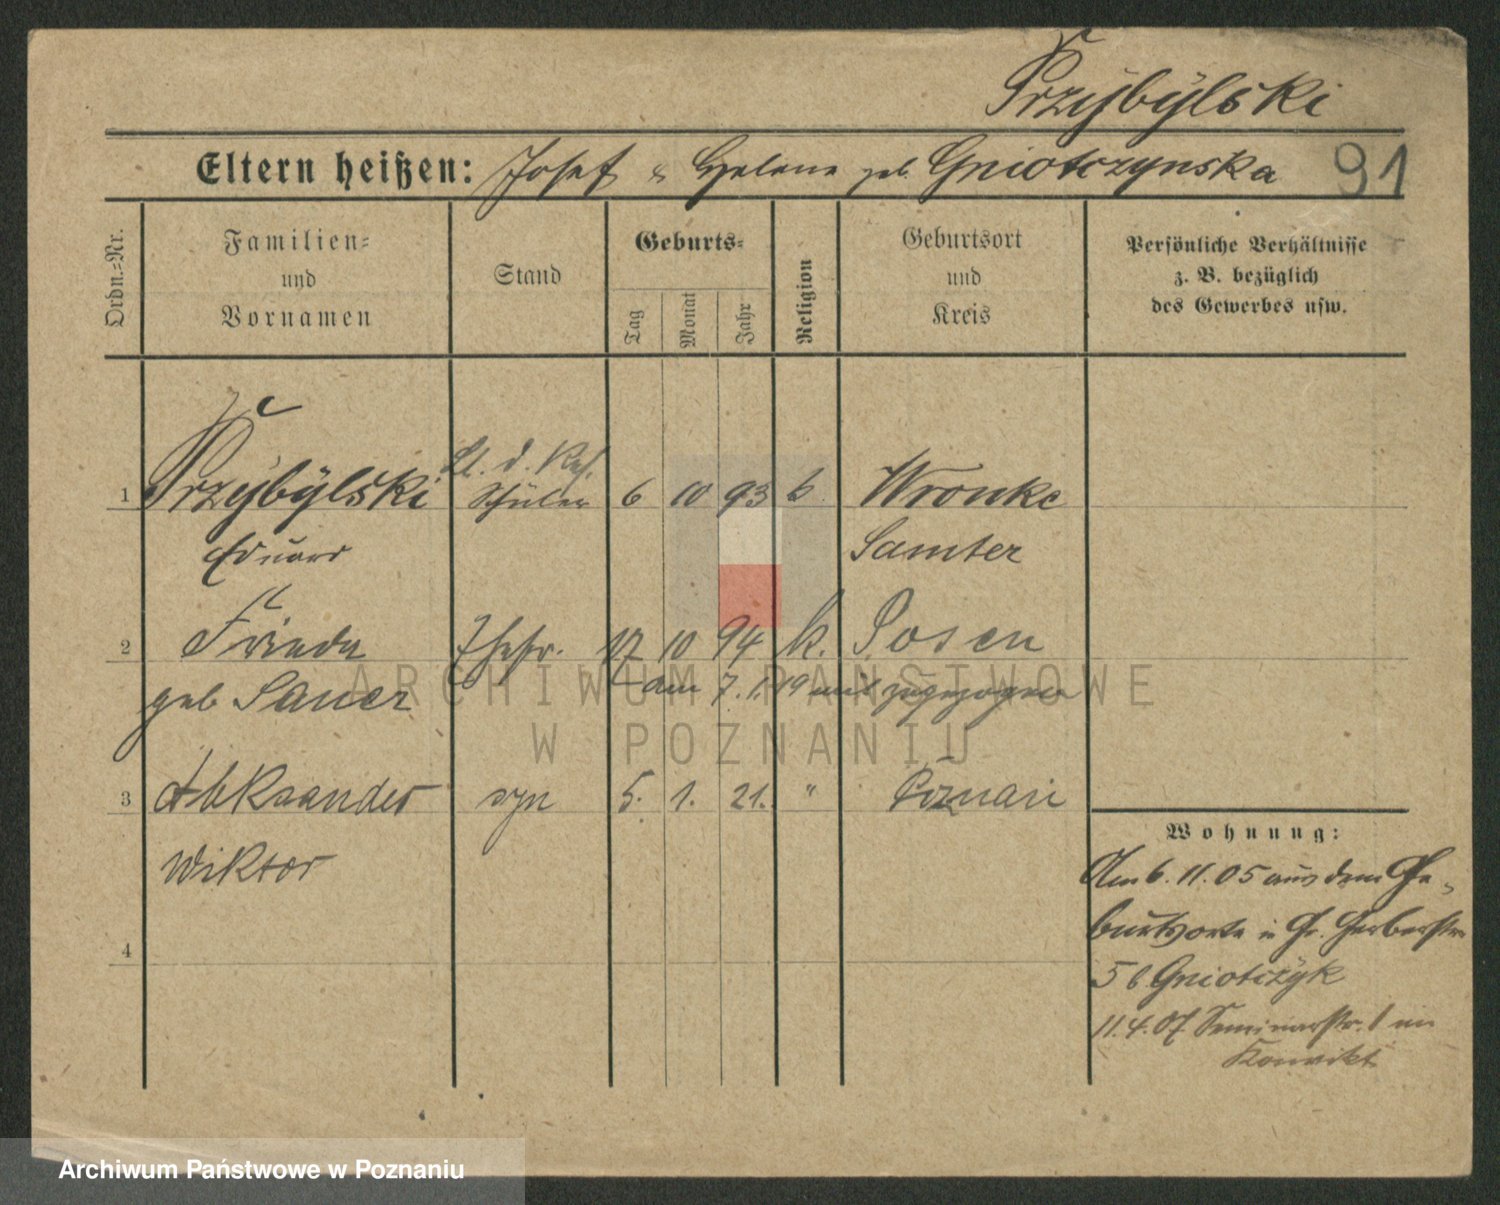 Przybylski
Eltern heißen: Josef & Helene geb. Gniotczynska
91
Ordn.-Nr.
Familien-
und
Vornamen
Stand
Geburts-
Tag
Monat
Jahr
Religion
Geburtsort
und
Kreis
Persönliche Verhältnisse
z. B. bezüglich
des Gewerbes usw.
1 Przybylski Schüler 6 10 93 k. Wronke
Eduard Samter
2 Frieda Ehefr. 17 10 94 k. Posen
geb Sauer am 7.1.19 mit zugezogen
3 Aleksander syn 5. 1. 21. " Poznań
Wiktor
4
Wohnung:
Am 6.11.05 aus dem Ge-
burtsorte in Gr. Gerberstr.
5 b Gniotczyk
11.4.07 Seminarstr. 1 im
Konvikt
ARCHIWUM PAŃSTWOWE
W POZNANIU
Archiwum Państwowe w Poznaniu